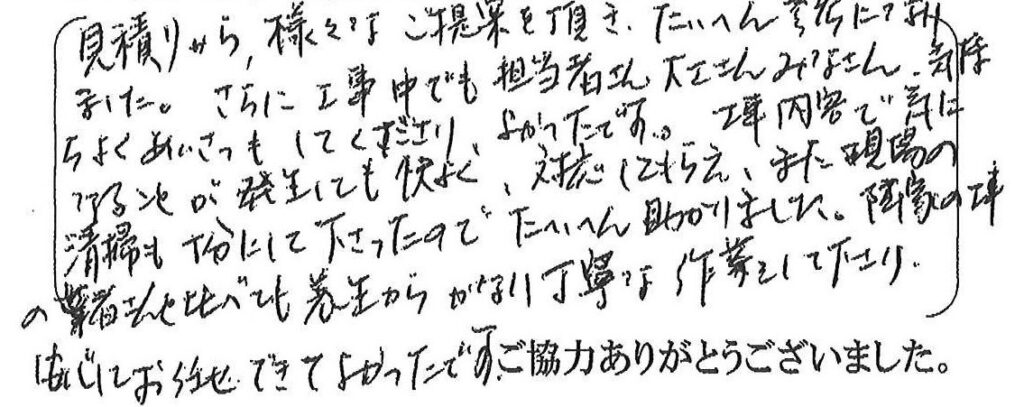 見積りから、様々なご提案を頂き、たいへん参考になり
ました。さらに工事中でも担当者さん、大工さんみなさん、気持
ちよくあいさつもしてくださり、よかったです。工事内容で気に
なることが発生しても快よく、対応してもらえ、また現場の
清掃も十分にして下さったのでたいへん助かりました。隣家の工事
の業者さんと比べても養生からかなり丁寧な作業をして下さり、
安心してお任せできてよかったです。ご協力ありがとうございました。